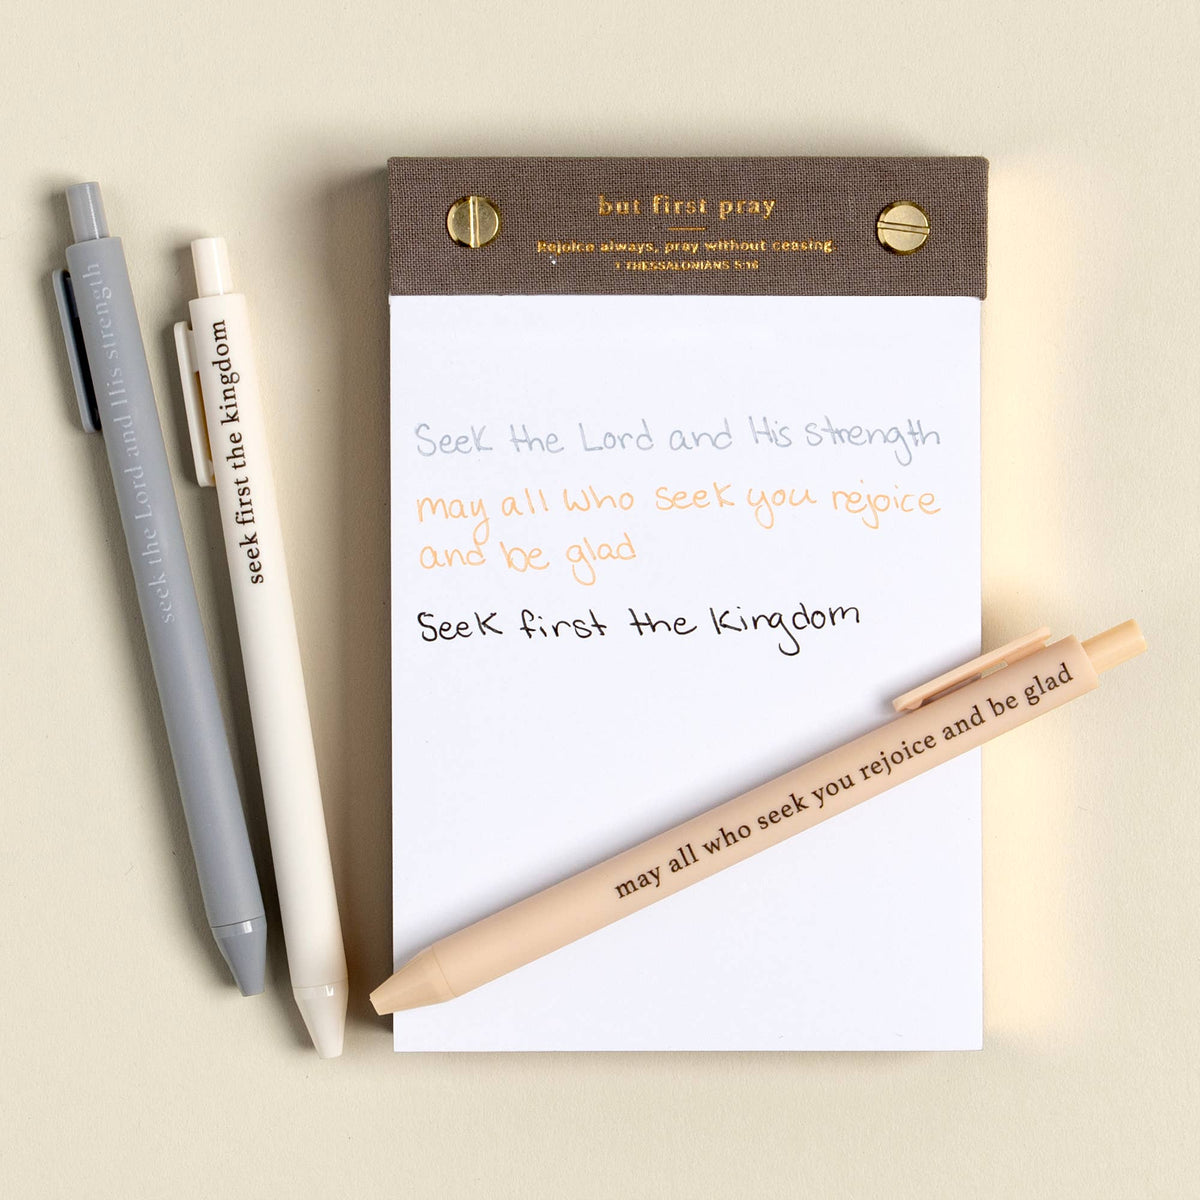 but first pray
Rejoice always, pray without ceasing
1 THESSALONIANS 5:16
Seek the Lord and His strength
may all who seek you rejoice
and be glad
Seek first the kingdom
seek the Lord and His strength
seek first the kingdom
may all who seek you rejoice and be glad